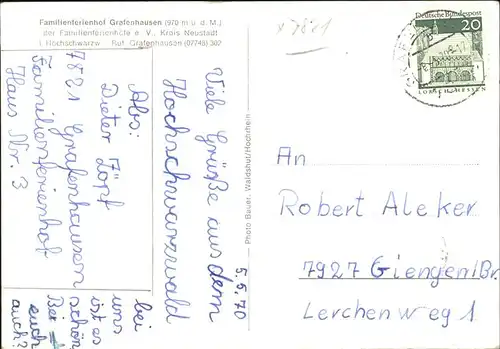 Familienferienhof Grafenhausen (970 m ü. d. M.)
der Familienferienhöfe e. V., Kreis Neustadt
i. Hochschwarzw. Ruf Grafenhausen (07745) 302
x 7821
Deutsche Bundespost
20
LORSCH/HESSEN
5.6.70
Viele Grüße aus dem
Hochschwarzwald
Abs:
Dieter Zopf
7821 Grafenhausen
Familienferienhof
Haus Nr. 3
bei
uns
ist es
schön
Bei
euch
auch?
Photo Bauer, Waldshut/Hochrhein
An
Robert Aleker
7927 Giengen/Br.
Lerchenweg 1